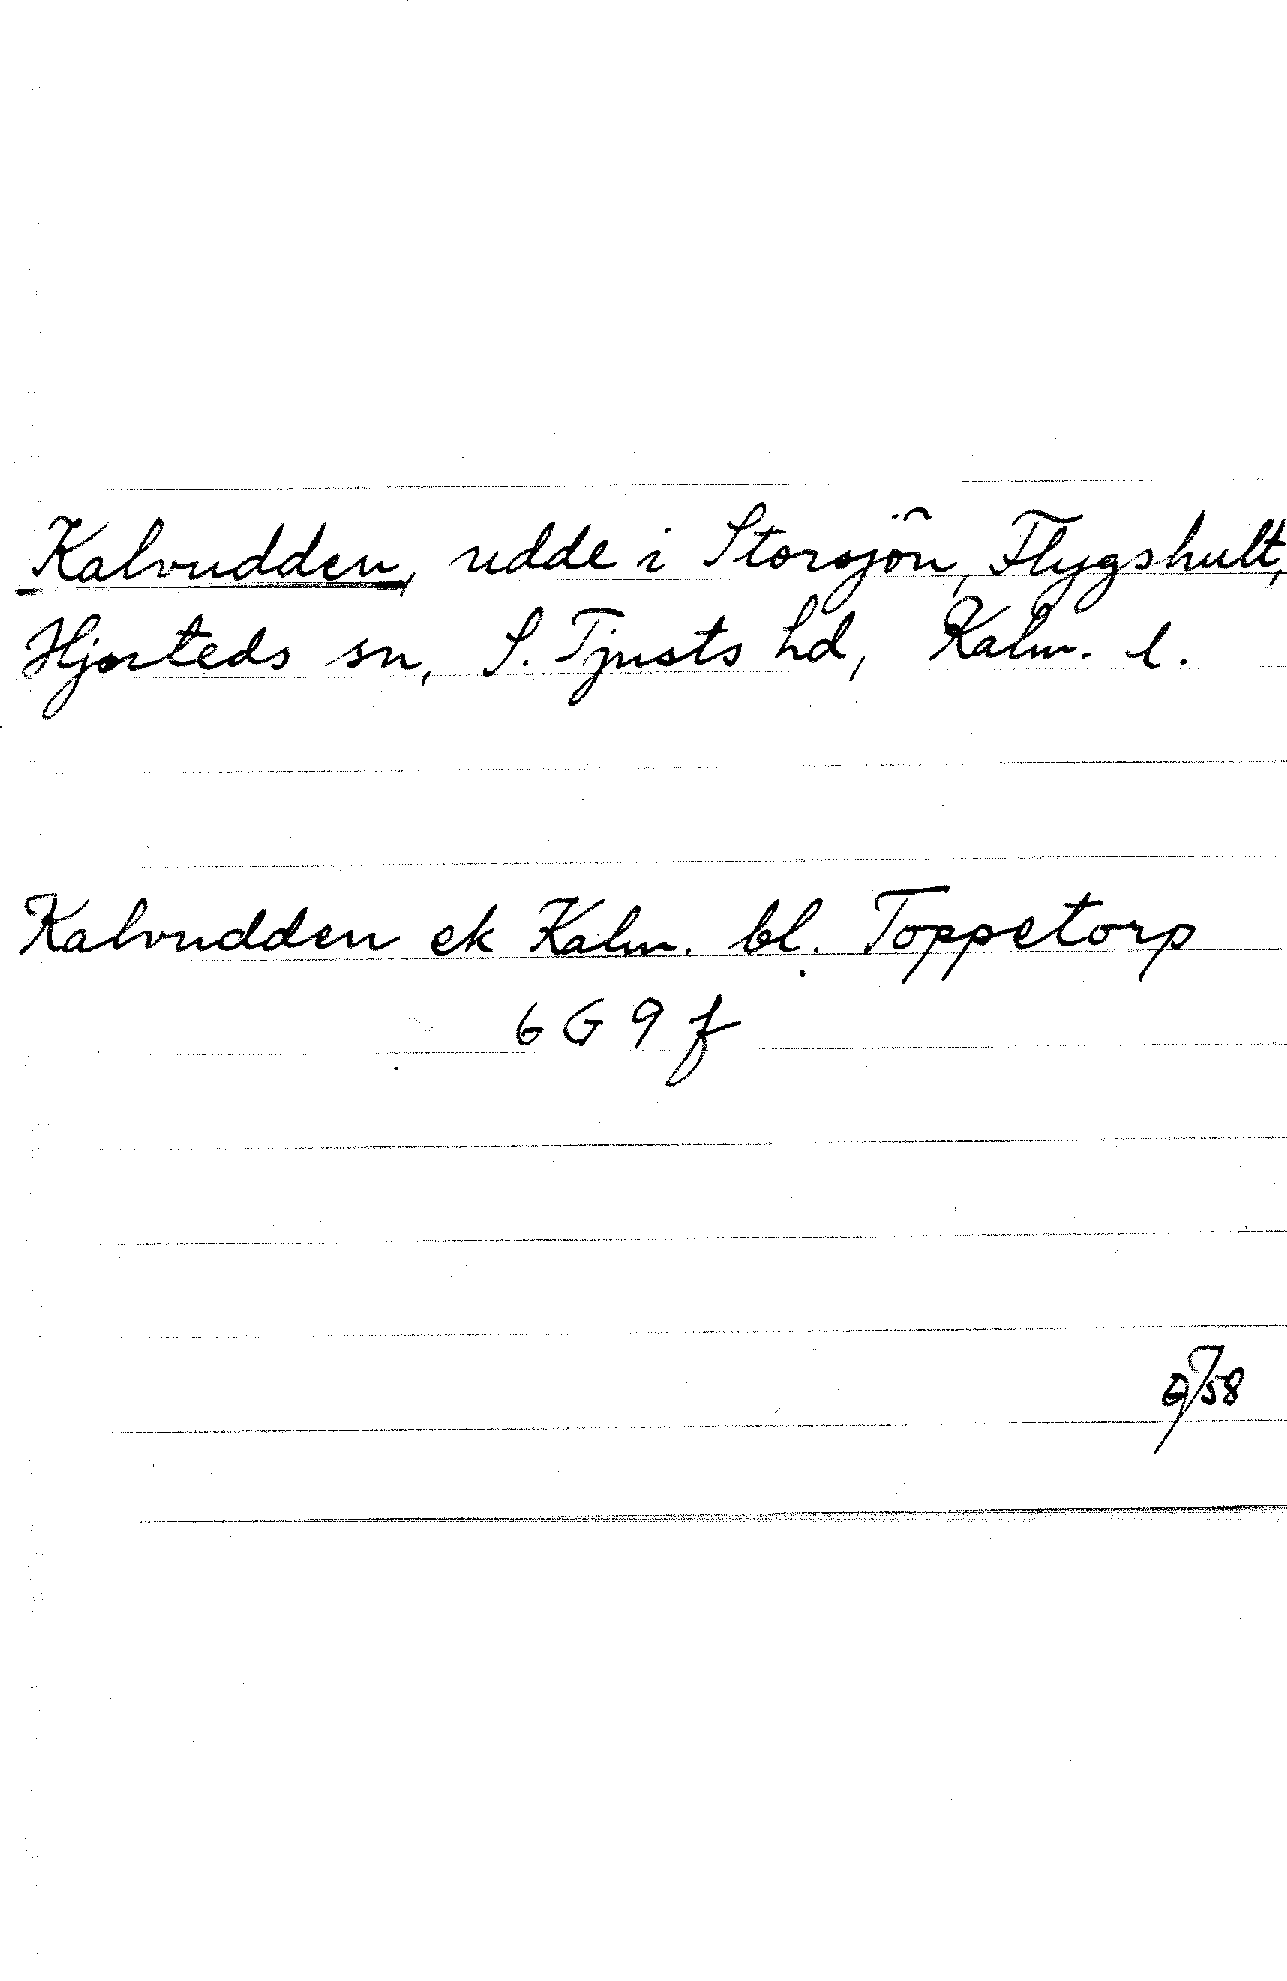 Kalvudden, udde i Storsjön, Flygshult,
Hjorteds sn, S. Tjusts hd, Kalm. l.
Kalvudden ek Kalm. bl. Toppetorp
6 G 9 f